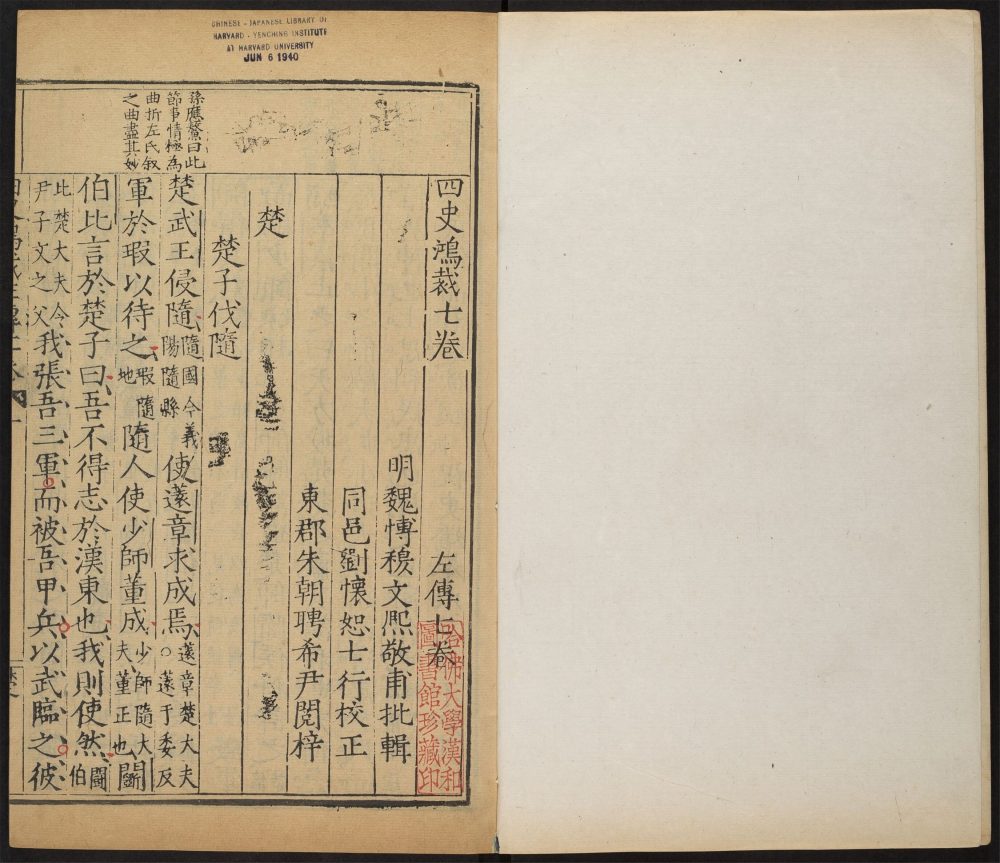 CHINESE - JAPANESE LIBRARY OF
HARVARD - YENCHING INSTITUTE
AT HARVARD UNIVERSITY
JUN 6 1940
四史鴻裁七卷 左傳七卷
哈佛大學漢和
圖書館珍藏印
明魏博穆文熈敬甫批輯
同邑劉懷恕士行校正
東郡朱朝聘希尹閲梓
楚
楚子伐隨
孫應鰲曰此
節事情極為
曲折左氏叙
之曲盡其妙
楚武王侵隨隨國今義陽隨縣使薳章求成焉薳章楚大夫○薳于委反
軍於瑕以待之瑕隨地隨人使少師董成少師隨大夫董正也鬭
伯比言於楚子曰吾不得志於漢東也我則使然鬭伯
比楚大夫今尹子文之父我張吾三軍而被吾甲兵以武臨之彼
楚